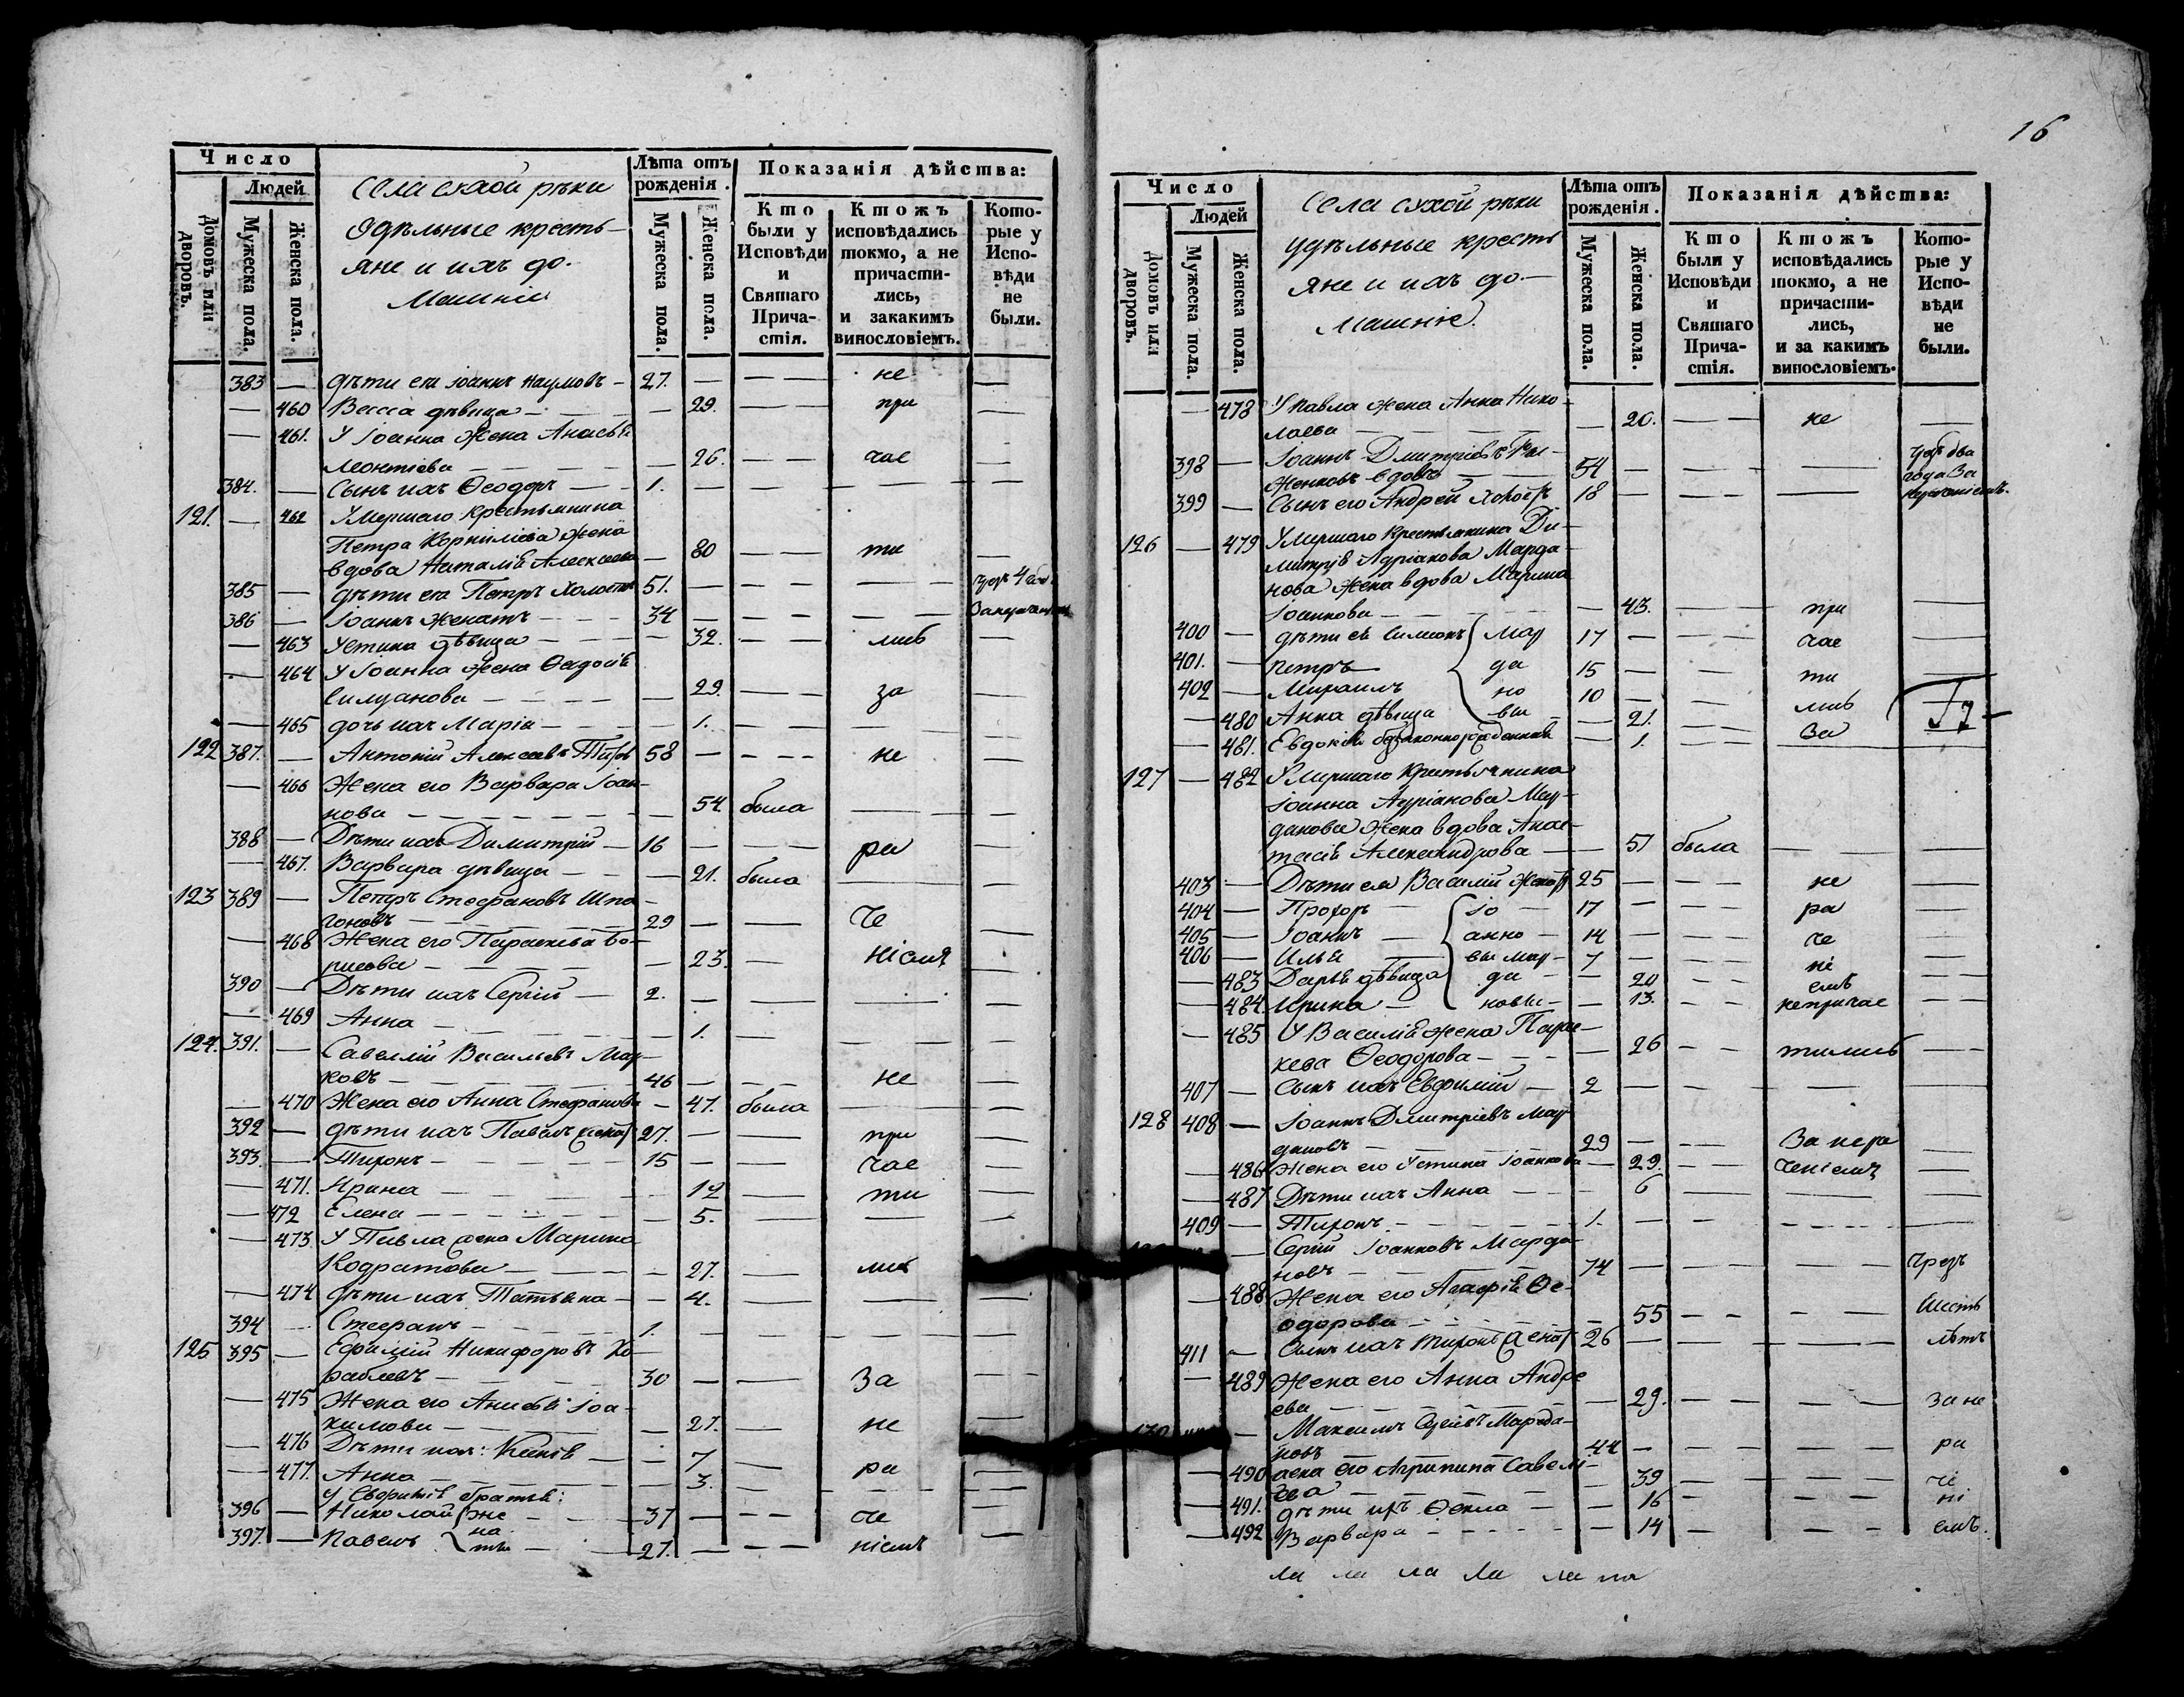 Число
Людей
Домовъ или дворовъ.
Мужеска пола.
Женска пола.
Села сухой рѣки
Удѣльные кресть-
яне и ихъ до-
машніе
Лѣта отъ рожденія.
Мужеска пола.
Женска пола.
Показанія дѣйства:
Кто были у Исповѣди и Святаго Прича-стія.
Ктожъ исповѣдались токмо, а не причасти-лись, и закакимъ винословіемъ.
Кото-рые у Испо-вѣди не были.
383 — дѣти его Іоаннъ Наумовъ — 27. — — — не —
— 460 Васса дѣвица — — 29. — — при —
— 461. У Іоанна жена
Леонтіева — — — 26. — — час —
384. — Сынъ ихъ Ѳеодоръ — — 1. — — — — —
121. — 462 Умершаго крестьянина
Петра Корнилієва жена
вдова Наталія Алексеева — 80 — — ти —
385 — дѣти ея Петръ холостъ 51. — — — —
386 — Іоаннъ женатъ — — — 34 — — — — —
— 463 Устина дѣвица — — — 32. — — лись —
— 464 У Іоанна жена Ѳедосія
Силуанова — — — — 29. — — за —
— 465 дочь ихъ Марія — — — — 1. — — — —
122 387. — Антоній Алексеевъ 58 — — — — не —
— 466 Жена его Варвара Іоан-
нова — — — — — — 54 была — —
388 — Дѣти ихъ Димитрій — 16 — — — ра —
— 467. Варвара дѣвица — — — 21. была — —
123 389 — Петръ Стефановъ
— — — — 29 — — Че
— 468 Жена его Параскева Бо-
рисова — — — — — 23. — ніемъ —
390 — Дѣти ихъ Сергій — 2. — — — —
— 469 Анна — — — — — 1. — — —
124. 391. — Савеллій Васильевъ Мар-
ковъ — — — — — 46 — — — не —
— 470 Жена его Анна Стефанова — 47. была — —
392 — дѣти ихъ Павелъ женат 27. — — при —
393. — Тихонъ — — — — — 15 — — час —
— 471. Ирина — — — — — 12 — ти —
— 472 Елена — — — — — 5. — — —
— 473 У Павла жена Марина
Кодратова — — — — 27. — лис
— 474 дѣти ихъ Татьяна — — 4. — — —
394 — Стефанъ — — — — 1. — — — — —
125 395 — Ефимій Никифоровъ
— — — — — 30 — — За — —
— 475 Жена его Анисья Іоа-
кимова — — — — 27. — не —
— 476 Дѣти ихъ: Ксенія — — 7 — ра —
— 477. Анна — — — — — 3. — — — —
У Евфимія братья:
396 — Николай { же — — 37 — — — че
397. — Павелъ { на ты — — 27. — — — ніемъ —
16
Число
Людей
Домовъ или дворовъ.
Мужеска пола.
Женска пола.
Села сухой рѣки
удѣльные кресть
яне и ихъ до-
машніе.
Лѣта отъ рожденія.
Мужеска пола.
Женска пола.
Показанія дѣйства:
Кто были у Исповѣди и Святаго Прича-стія.
Ктожъ исповѣдались токмо, а не причасти-лись, и за какимъ винословіемъ.
Кото-рые у Испо-вѣди не были.
— 478 У Павла жена Анна Нико-
лаева — — — — — 20. — — не —
398 — Іоаннъ Дмитріевъ
вдовъ — — 54 — — — —
399 — Сынъ его Андрей 18 — — — —
126 — 479 Умершаго крестьянина Ди-
митрія Адріанова Марда-
нова жена вдова Марина
Іоаннова — — — — 43. — при —
400 — дѣти ея Симеонъ { Мар 17 — — — час —
401. — Петръ { да 15 — — ти —
402 — Михаилъ { но 10 — — — лись
— 480 Анна дѣвица { вы — 21. — — За
— 481. Евдокія незаконнорожденная — 1. — — —
127 — 482 Умершаго крестьянина
Іоанна Адріанова Мар-
данова жена вдова Анас-
тасія Александрова — — 51 была — — —
403 — Дѣти ея Василій женат 25 — — — не —
404 — Прохоръ — { Іо — 17 — — — ра —
405 — Іоаннъ — { анно — 14 — — — че —
406 — Илья — { вы Мар- 7 — — — ні —
— 483 Дарья дѣвица { да — — 20 — — емъ —
— 484. Ирина — { новы — — 13. — — непричас — —
— 485 У Василія жена Парас-
кева Ѳеодорова — — — — 26 — — тились — —
407 — Сынъ ихъ Евфимій — 2 — — — — —
128 408 — Іоаннъ Дмитріевъ Мар-
дановъ — — — — — 29 — — — За нера —
— 486 Жена его Устина Іоаннова — 29. — — ченіемъ —
— 487 Дѣти ихъ Анна — — — 6 — — — —
409 — Тихонъ — — — — — 1. — — — — —
— Сергій Іоанновъ Марда-
новъ — — — — — 74 — — — — Чрезъ
— 488 Жена его Агафія Ѳе-
одорова — — — — — 55 — — — — Шесть
411 — Сынъ ихъ Тихонъ женат 26 — — — — лѣтъ
— 489 Жена его Анна Андре
ева — — — — — 29. — — — — за не
— Максимъ Сергѣевъ Марда-
новъ — — — — — 44 — — — — ра
— 490 жена его Агрипина Савелі-
ева — — — — — 39 — — — — че
— 491. дѣти ихъ Ѳекла — — — 16 — — — — ні
— 492 Варвара — — — — — 14 — — — — емъ.
ла ла ла ла ла ла